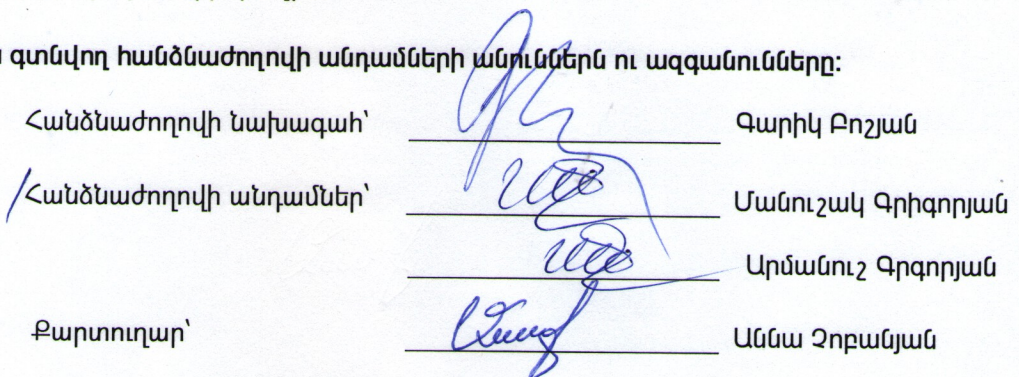 գտնվող հանձնաժողովի անդամների անուններն ու ազգանունները:
Հանձնաժողովի նախագահ՝ Գարիկ Բոշյան
Հանձնաժողովի անդամներ՝ Մանուշակ Գրիգորյան
Արմանուշ Գրգորյան
Քարտուղար՝ Աննա Չոբանյան